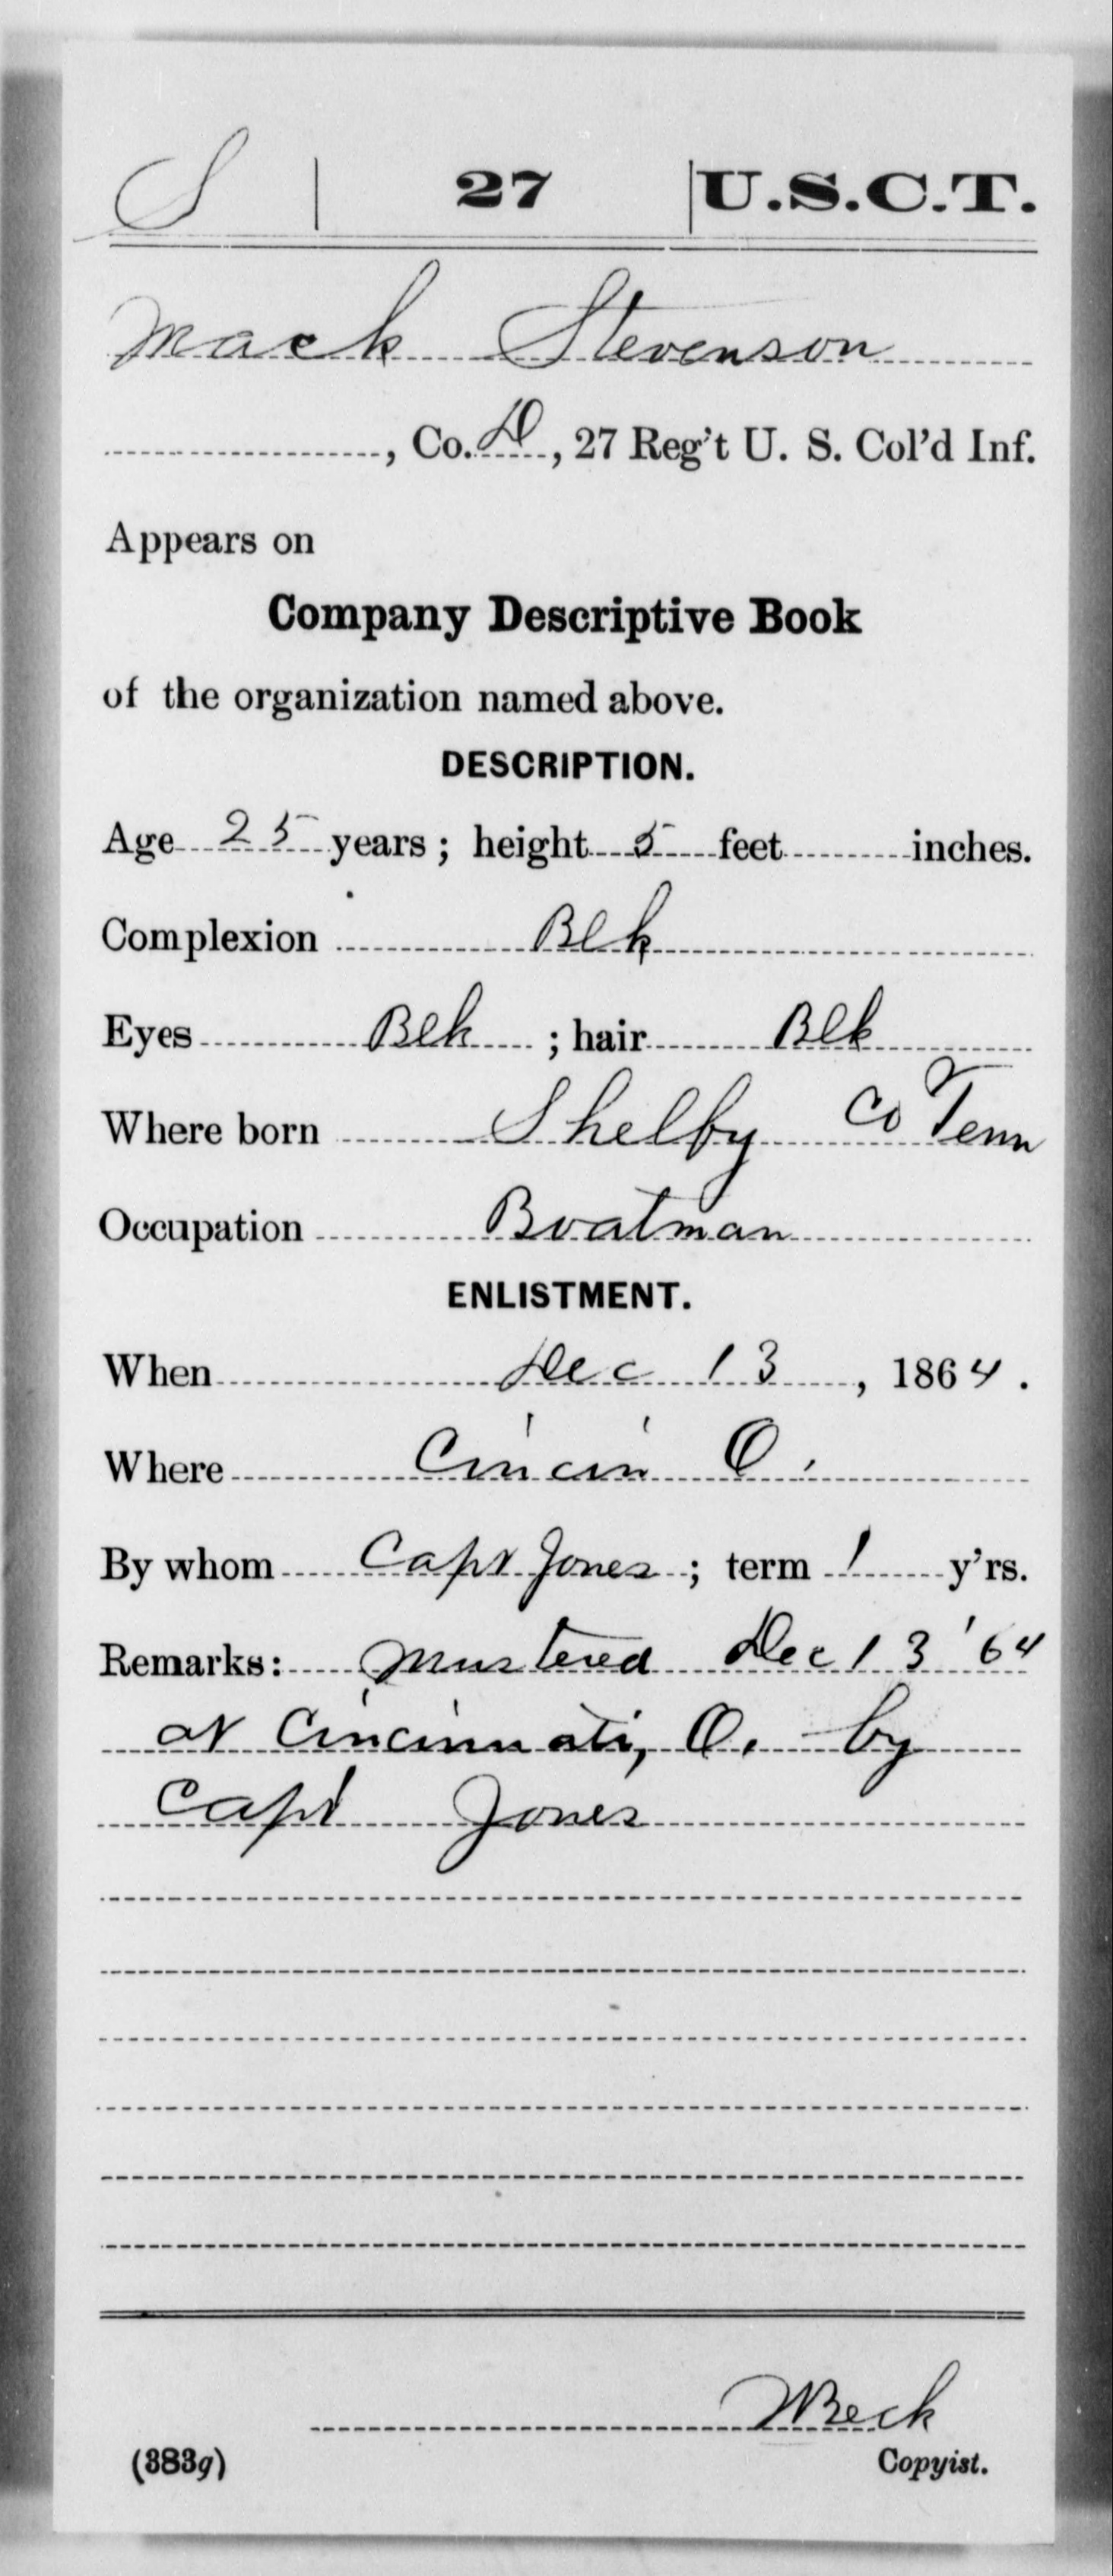 S | 27 | U.S.C.T.
Mack Stevenson
, Co. D, 27 Reg't U. S. Col'd Inf.
Appears on
Company Descriptive Book
of the organization named above.
DESCRIPTION.
Age 25 years; height 5 feet inches.
Complexion Blk
Eyes Blk ; hair Blk
Where born Shelby Co Tenn
Occupation Boatman
ENLISTMENT.
When Dec 13, 1864.
Where Cincin O.
By whom Capt Jones; term 1 y'rs.
Remarks: Mustered Dec 13 '64
at Cincinnati, O. by
Capt Jones
WBeck
(383g) Copyist.